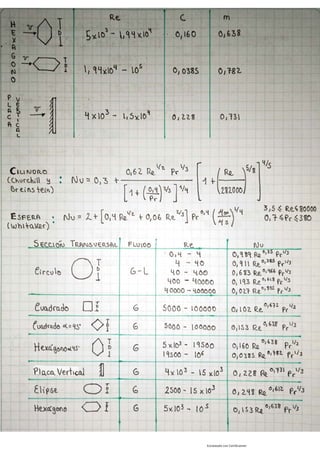 Re C m
HEXAGONO
5x10³ - 1,94x10⁴ 0,160 0,638
1,94x10⁴ - 10⁵ 0,0385 0,782
PLACA VERTICAL
4x10³ - 1,5x10⁴ 0,228 0,731
CILINDRO (Churchill y Breinstein) : Nu = 0,3 + 0,62 Re^1/2 Pr^1/3 / [1 + (0,4/Pr)^2/3]^1/4 [1 + (Re/282000)^5/8]^4/5
ESFERA (Whitaker) : Nu = 2 + [0,4 Re^1/2 + 0,06 Re^2/3] Pr^0,4 (μ∞/μs)^1/4
3,5 ≤ Re ≤ 80000
0,7 ≤ Pr ≤ 380
SECCIÓN TRANSVERSAL FLUIDO Re Nu
Circulo D G-L
0,4 - 4 0,989 Re^0,33 Pr^1/3
4 - 40 0,911 Re^0,385 Pr^1/3
40 - 400 0,683 Re^0,466 Pr^1/3
400 - 40000 0,193 Re^0,618 Pr^1/3
40000 - 400000 0,027 Re Pr^1/3
Cuadrado G 5000 - 100000 0,102 Re Pr^1/3
Cuadrado α=45° G 5000 - 100000 0,153 Re^0,638 Pr^1/3
Hexágono α45° D G 5x10³ - 19500 0,160 Re^0,638 Pr^1/3
19500 - 10⁵ 0,0385 Re^0,782 Pr^1/3
Placa Vertical G 4x10³ - 15x10³ 0,228 Re^0,731 Pr^1/3
Elipse G 2500 - 15x10³ 0,248 Re^0,612 Pr^1/3
Hexágono G 5x10³ - 10⁵ 0,153 Re^0,638 Pr^1/3
Escaneado con CamScanner